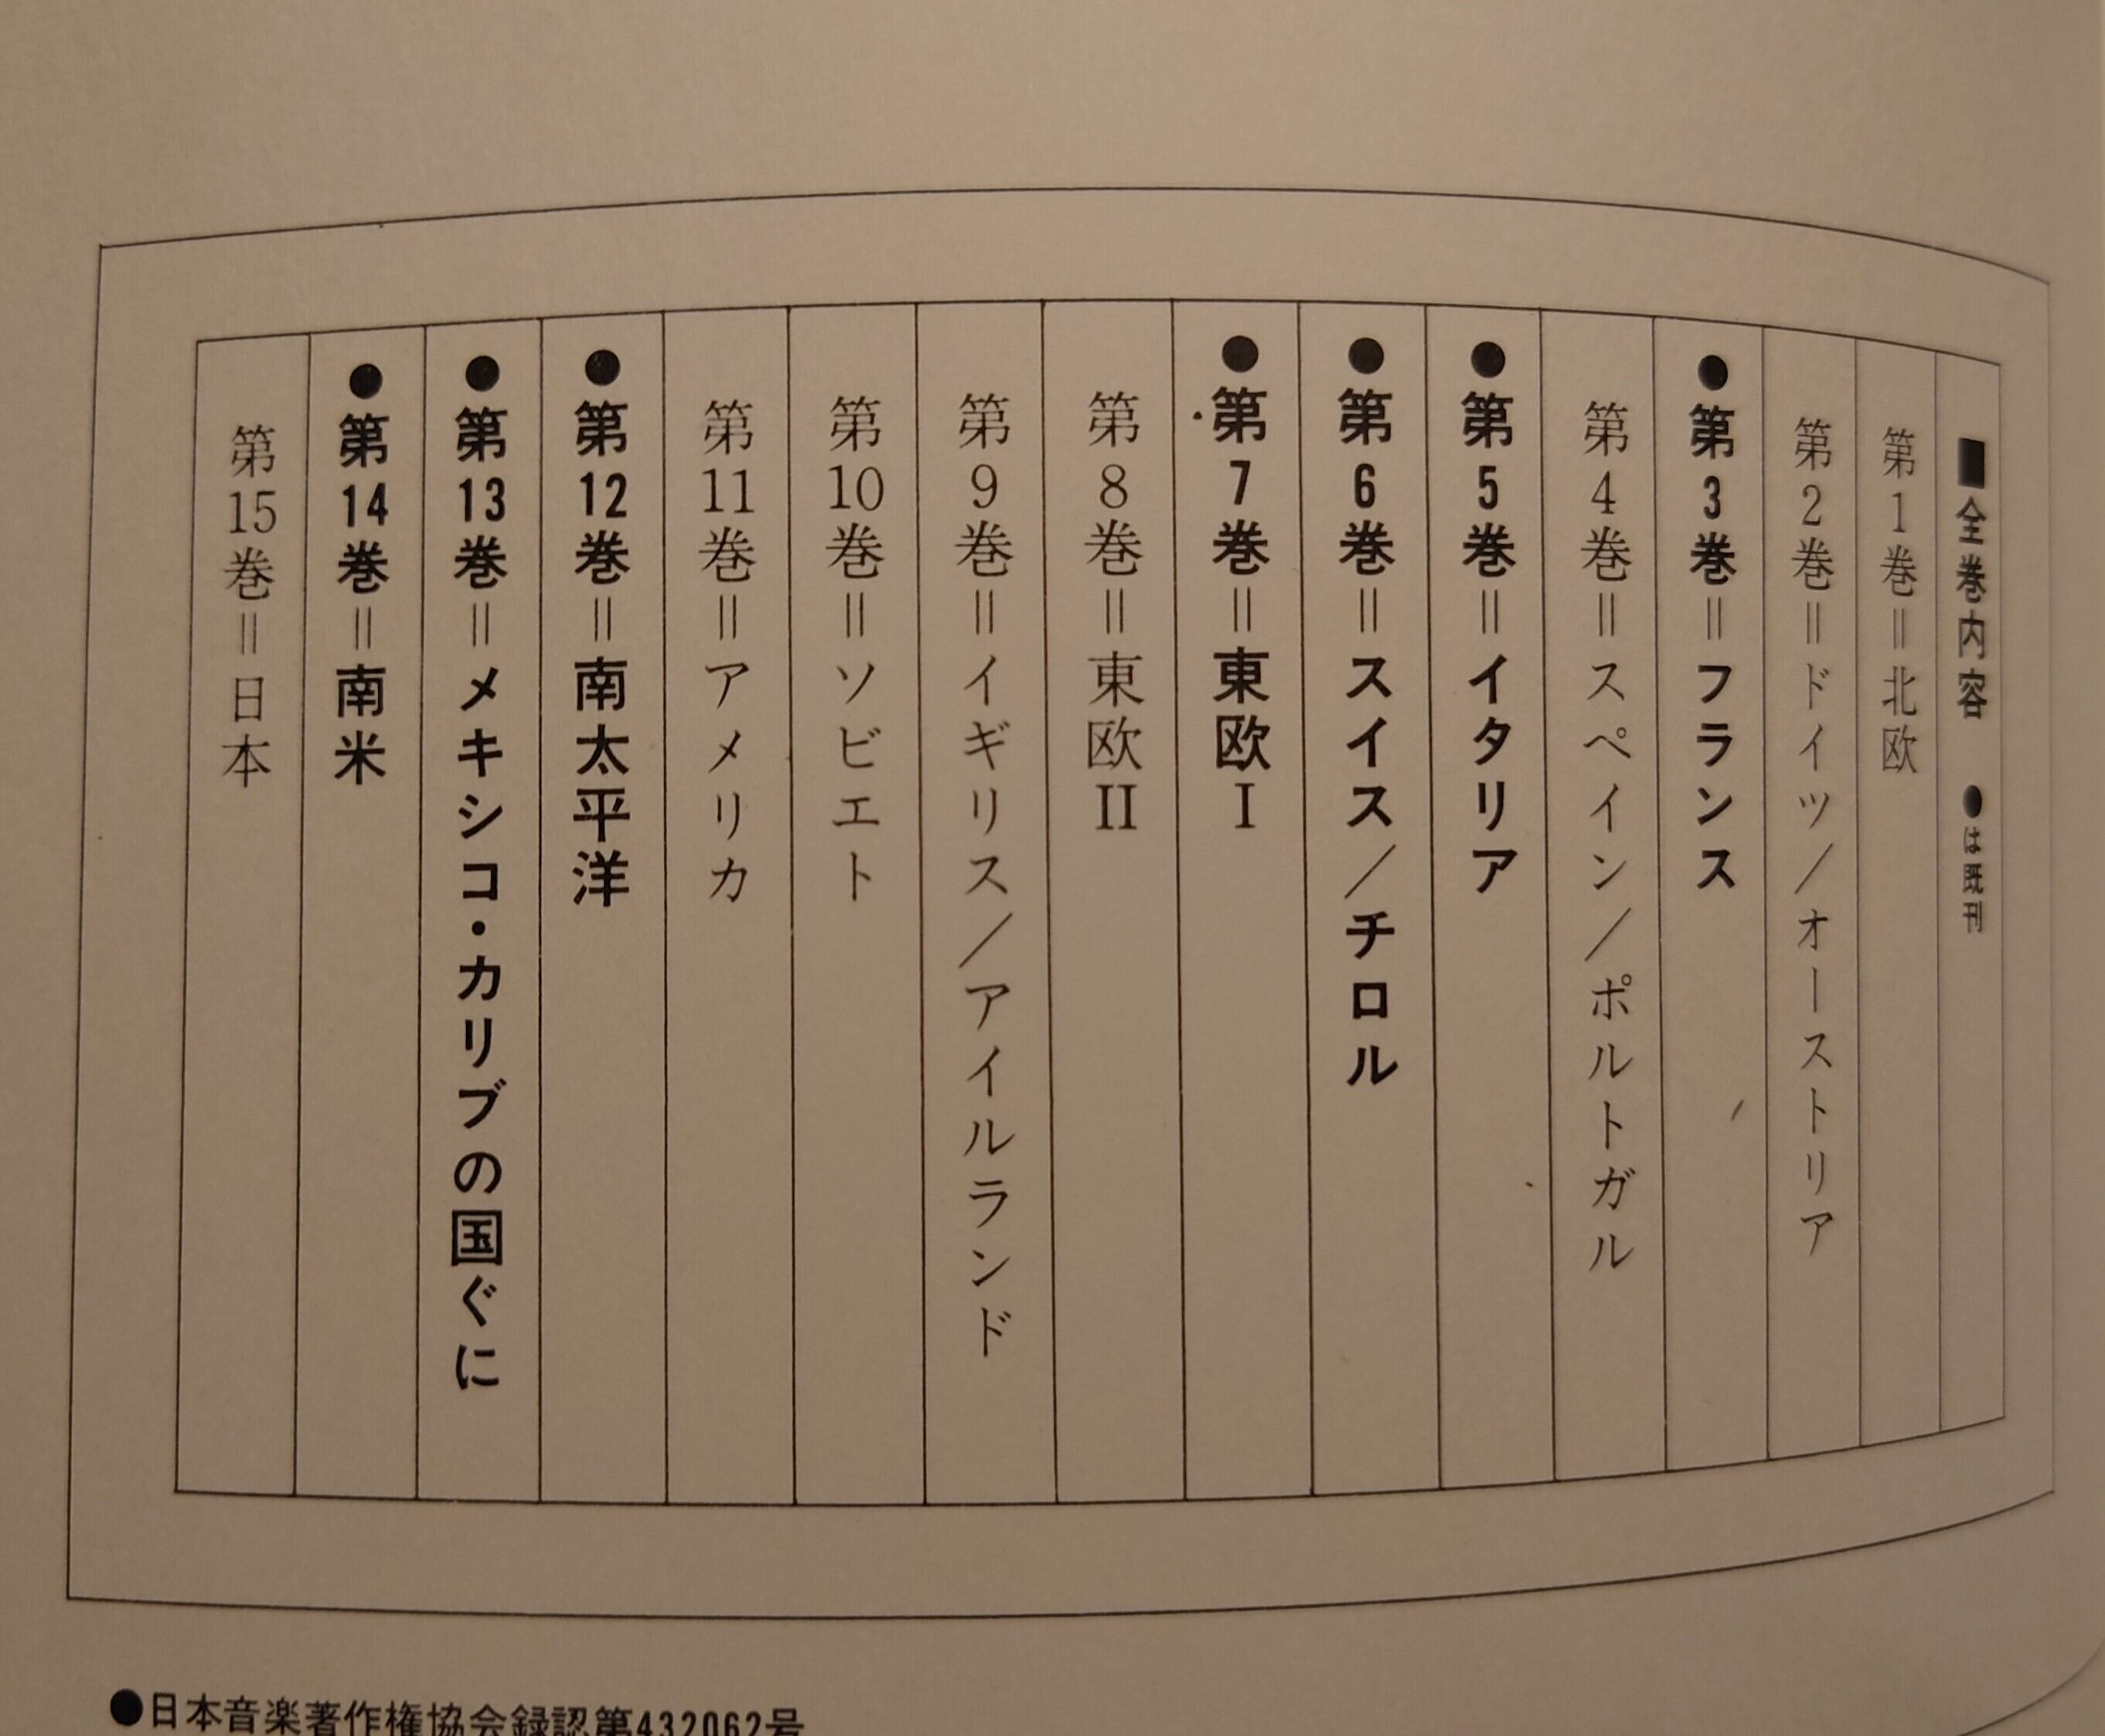 ■全巻内容　●は既刊
第1巻＝北欧
第2巻＝ドイツ／オーストリア
●第3巻＝フランス
第4巻＝スペイン／ポルトガル
●第5巻＝イタリア
●第6巻＝スイス／チロル
●第7巻＝東欧I
第8巻＝東欧II
第9巻＝イギリス／アイルランド
第10巻＝ソビエト
第11巻＝アメリカ
●第12巻＝南太平洋
●第13巻＝メキシコ・カリブの国ぐに
●第14巻＝南米
第15巻＝日本
●日本音楽著作権協会録認第432062号